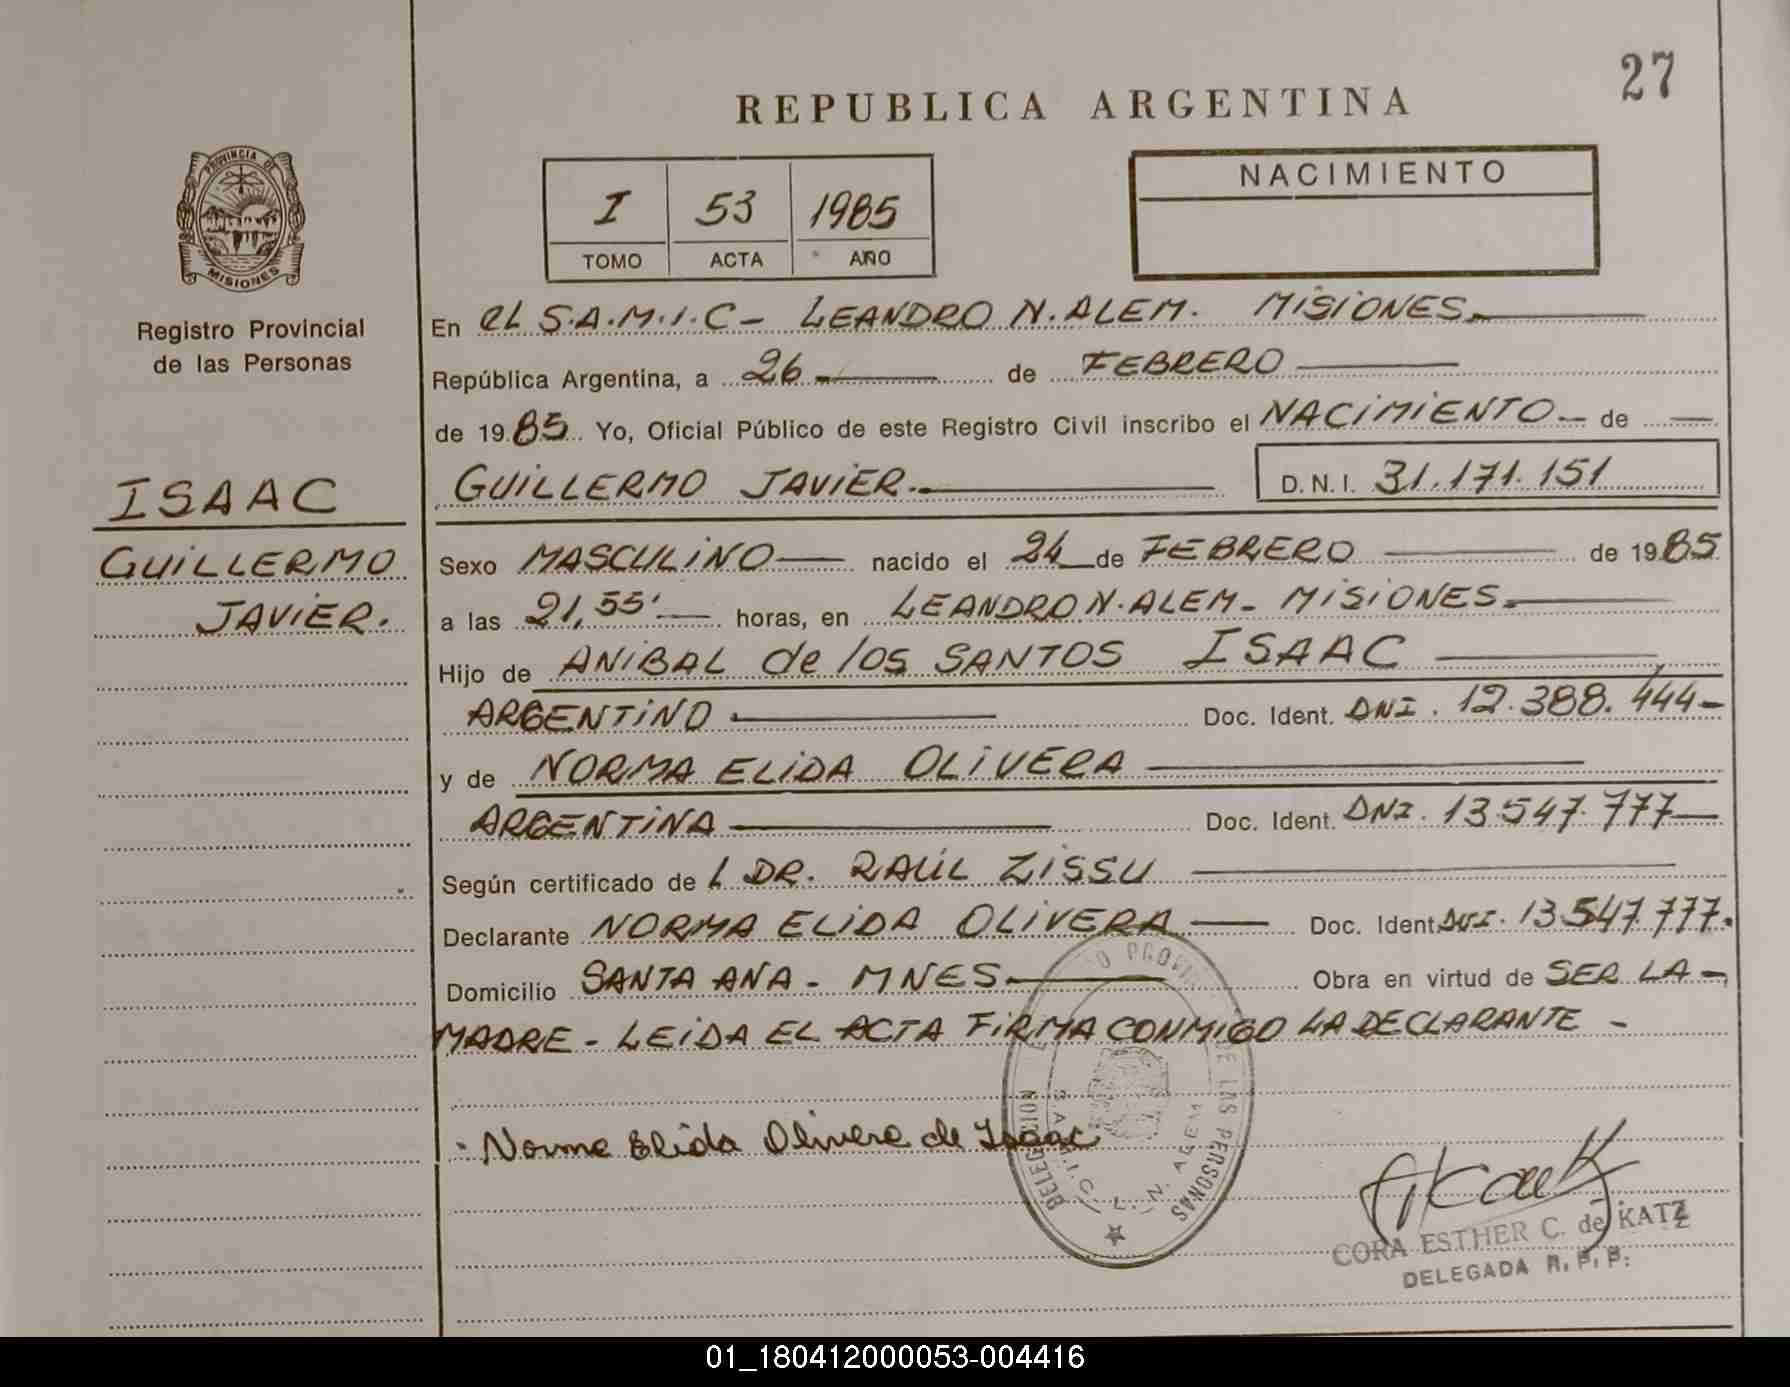 27
REPUBLICA ARGENTINA
PROVINCIA DE
MISIONES
Registro Provincial
de las Personas
I 53 1985
TOMO ACTA AÑO
NACIMIENTO
En el S.A.M.I.C - LEANDRO N. ALEM. MISIONES.
República Argentina, a 26 de FEBRERO
de 1985 Yo, Oficial Público de este Registro Civil inscribo el NACIMIENTO de
GUILLERMO JAVIER. D.N.I. 31.171.151
ISAAC
GUILLERMO
JAVIER.
Sexo MASCULINO nacido el 24 de FEBRERO de 1985
a las 21,55' horas, en LEANDRO N. ALEM - MISIONES.
Hijo de ANIBAL de los SANTOS ISAAC
ARGENTINO Doc. Ident. DNI. 12.388.444-
y de NORMA ELIDA OLIVERA
ARGENTINA Doc. Ident. DNI. 13.547.777
Según certificado de L DR. RAÚL ZISSU
Declarante NORMA ELIDA OLIVERA Doc. Ident. DNI. 13.547.777.
Domicilio SANTA ANA - MNES Obra en virtud de SER LA -
MADRE - LEIDA EL ACTA FIRMA CONMIGO LA DECLARANTE -
Norma Elida Olivera de Isaac
DE LAS PERSONAS
S.A.M.I.C. L. N. ALEM
CORA ESTHER C. de KATZ
DELEGADA R. P. P.
01_180412000053-004416